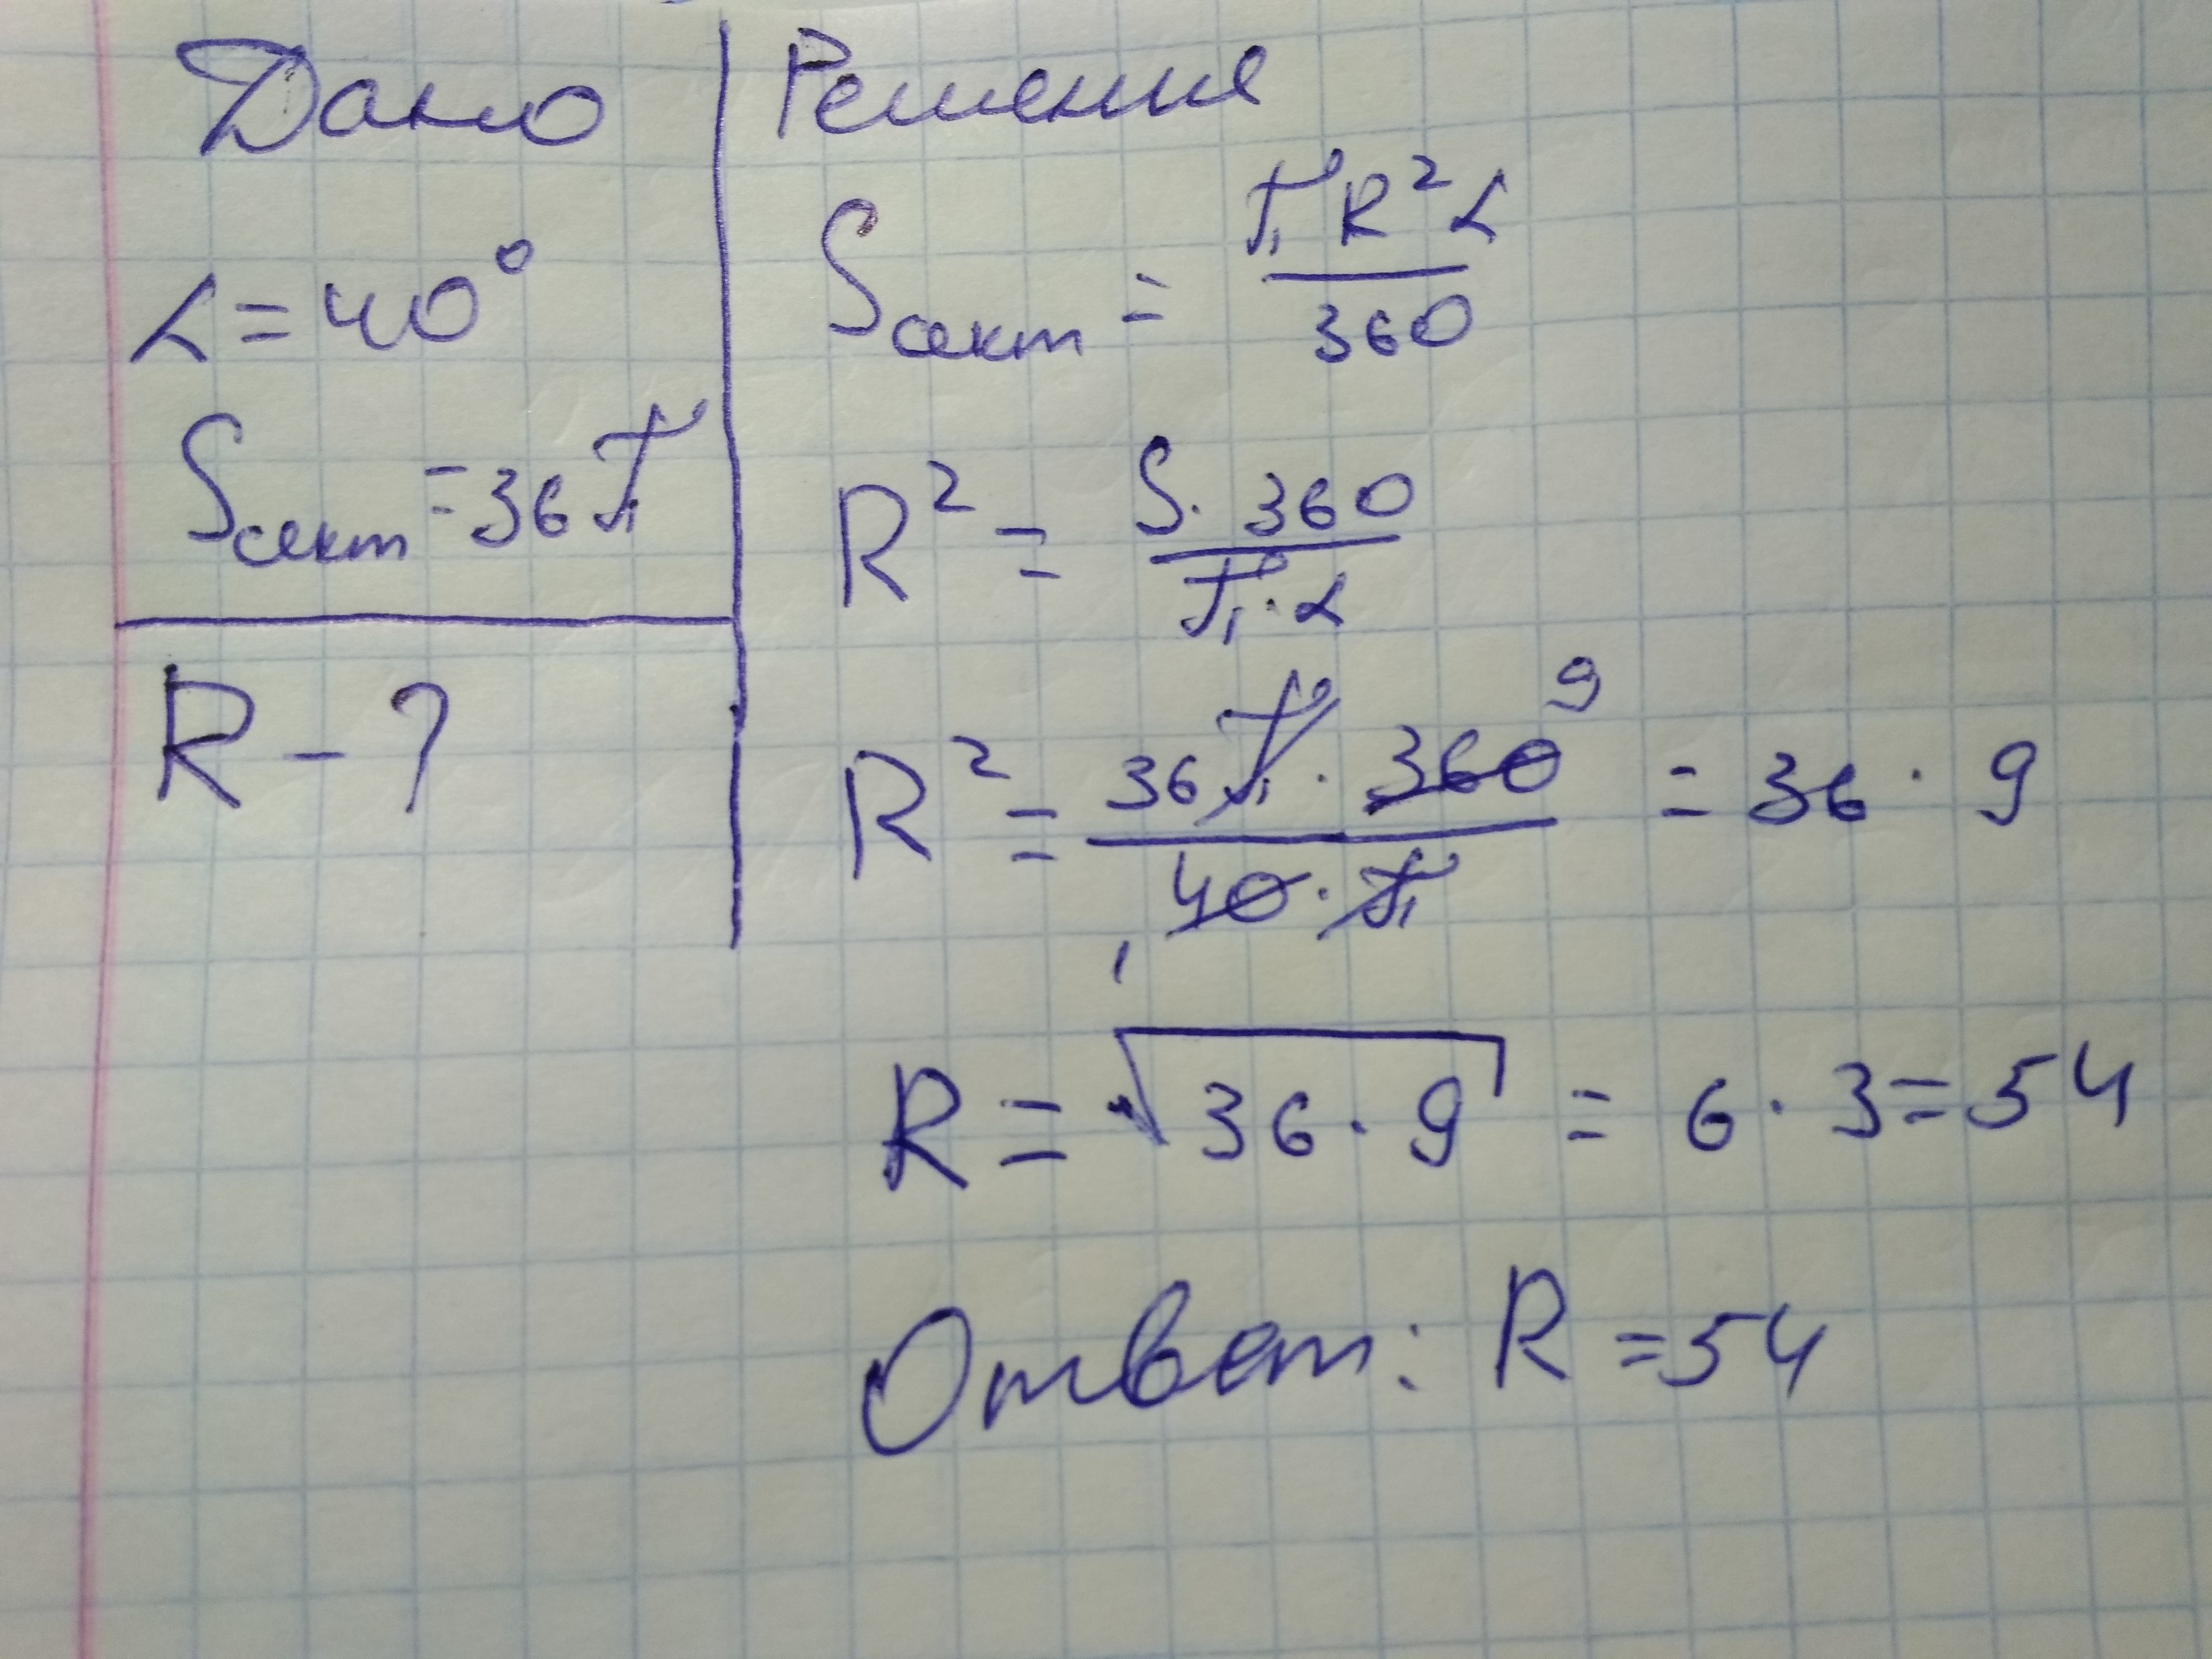 Дано
α = 40°
Sсект = 36π
R - ?
Решение
Sсект = πR²α / 360
R² = S · 360 / π · α
R² = 36π · 360 9 / 40 · π 1 = 36 · 9
R = √36 · 9 = 6 · 3 = 54
Ответ: R = 54